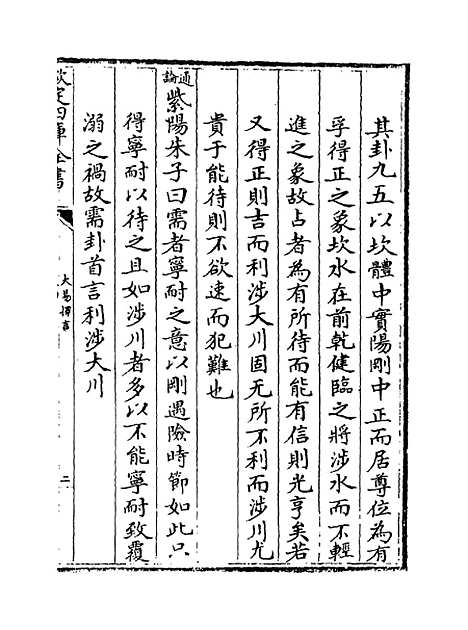 其卦九五以坎體中實陽剛中正而居尊位為有
孚得正之象坎水在前乾健臨之將涉水而不輕
進之象故占者為有所待而能有信則光亨矣若
又得正則吉而利涉大川固无所不利而涉川尤
貴于能待則不欲速而犯難也
通論
紫陽朱子曰需者寧耐之意以剛遇險時節如此只
得寧耐以待之且如涉川者多以不能寧耐致覆
溺之禍故需卦首言利涉大川
欽定四庫全書
大易擇言
二